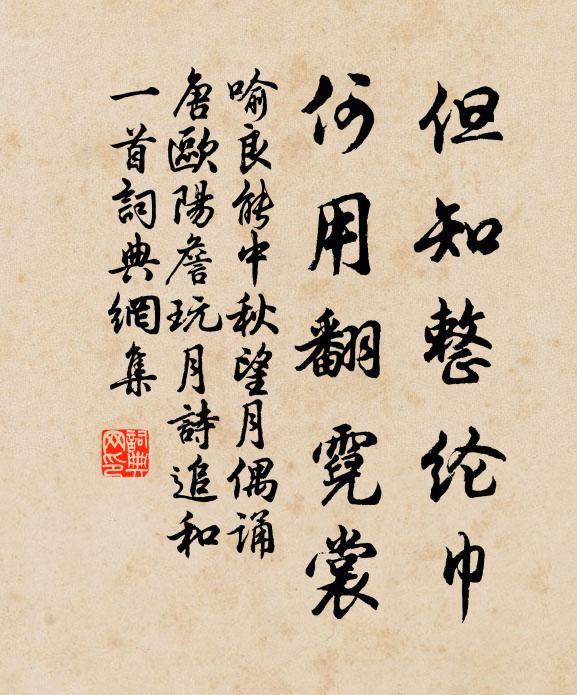 但知整纶巾
何用翻霓裳
喻良能中秋望月偶诵
唐歐陽詹玩月詩追和
一首詞典網集
詞典
网印